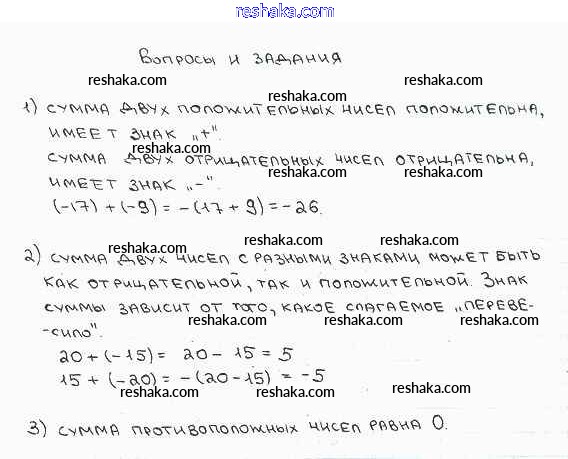 reshaka.com
Вопросы и задания
reshaka.com reshaka.com
reshaka.com
1) Сумма двух положительных чисел положительна,
имеет знак „+".
reshaka.com reshaka.com
Сумма двух отрицательных чисел отрицательна,
имеет знак „-".
reshaka.com reshaka.com
(-17) + (-9) = -(17 + 9) = -26.
reshaka.com reshaka.com reshaka.com
2) Сумма двух чисел с разными знаками может быть
как отрицательной, так и положительной. Знак
суммы зависит от того, какое слагаемое „переве-
-сило".
reshaka.com reshaka.com reshaka.com
20 + (-15) = 20 - 15 = 5
15 + (-20) = -(20-15) = -5
reshaka.com reshaka.com reshaka.com
3) Сумма противоположных чисел равна 0.
reshaka.com